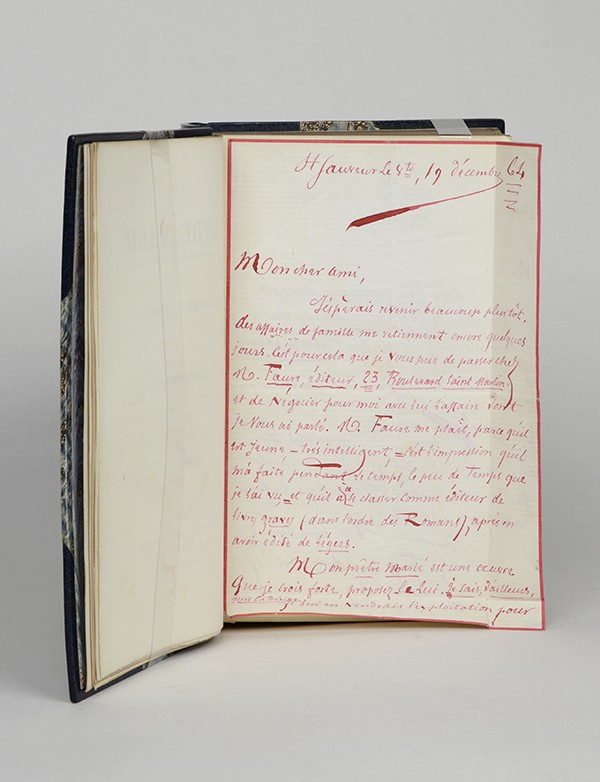 St Sauveur le Vte, 19 décembre 64
Mon cher ami,
J'espérais revenir beaucoup plutôt.
des affaires de famille me retiennent encore quelques
jours. C'est pour cela que je vous prie de passer chez
M. Faure, éditeur, 23 Boulevard Saint Martin
et de négocier pour moi avec lui l'affaire dont
je vous ai parlé. M. Faure me plaît, parce qu'il
est Jeune – très intelligent, – c'est l'impression qu'il
m'a faite pendant le temps, le peu de Temps que
je l'ai vu, – et qu'il a à se classer comme éditeur de
livres graves (dans l'ordre des Romans), après en
avoir édité de légers.
Mon prêtre Marié est une œuvre
Que je crois forte, proposez-le lui. Je sais, d'ailleurs,
lui en vendrais l'exploitation pour